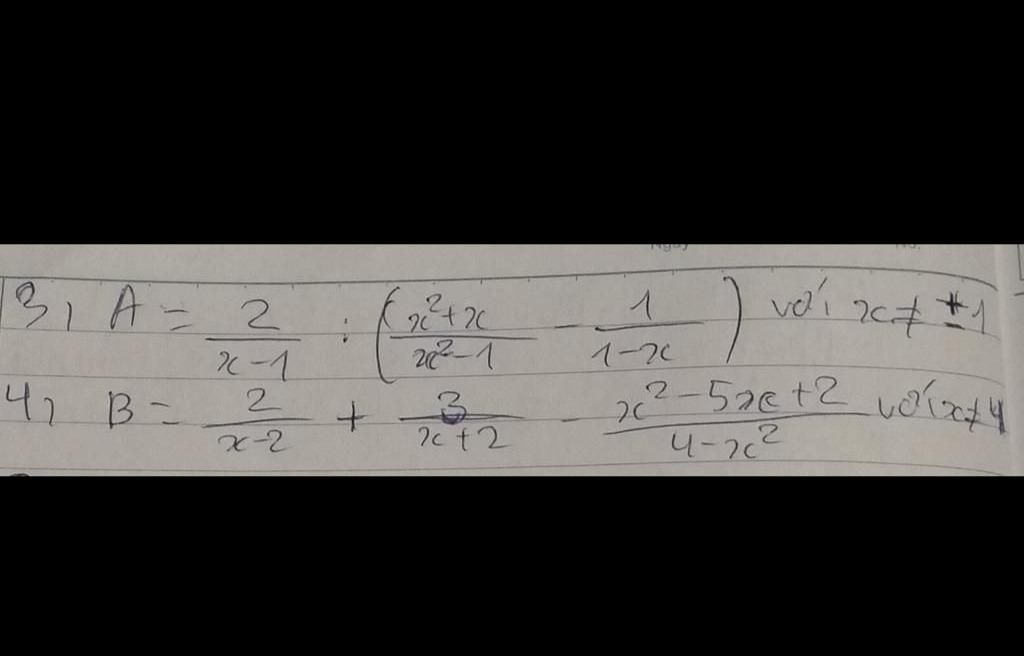 3, A = \frac{2}{x-1} : \left(\frac{x^2+x}{x^2-1} - \frac{1}{1-x}\right) với x ≠ ±1
4, B = \frac{2}{x-2} + \frac{3}{x+2} - \frac{x^2-5x+2}{4-x^2} với x≠4